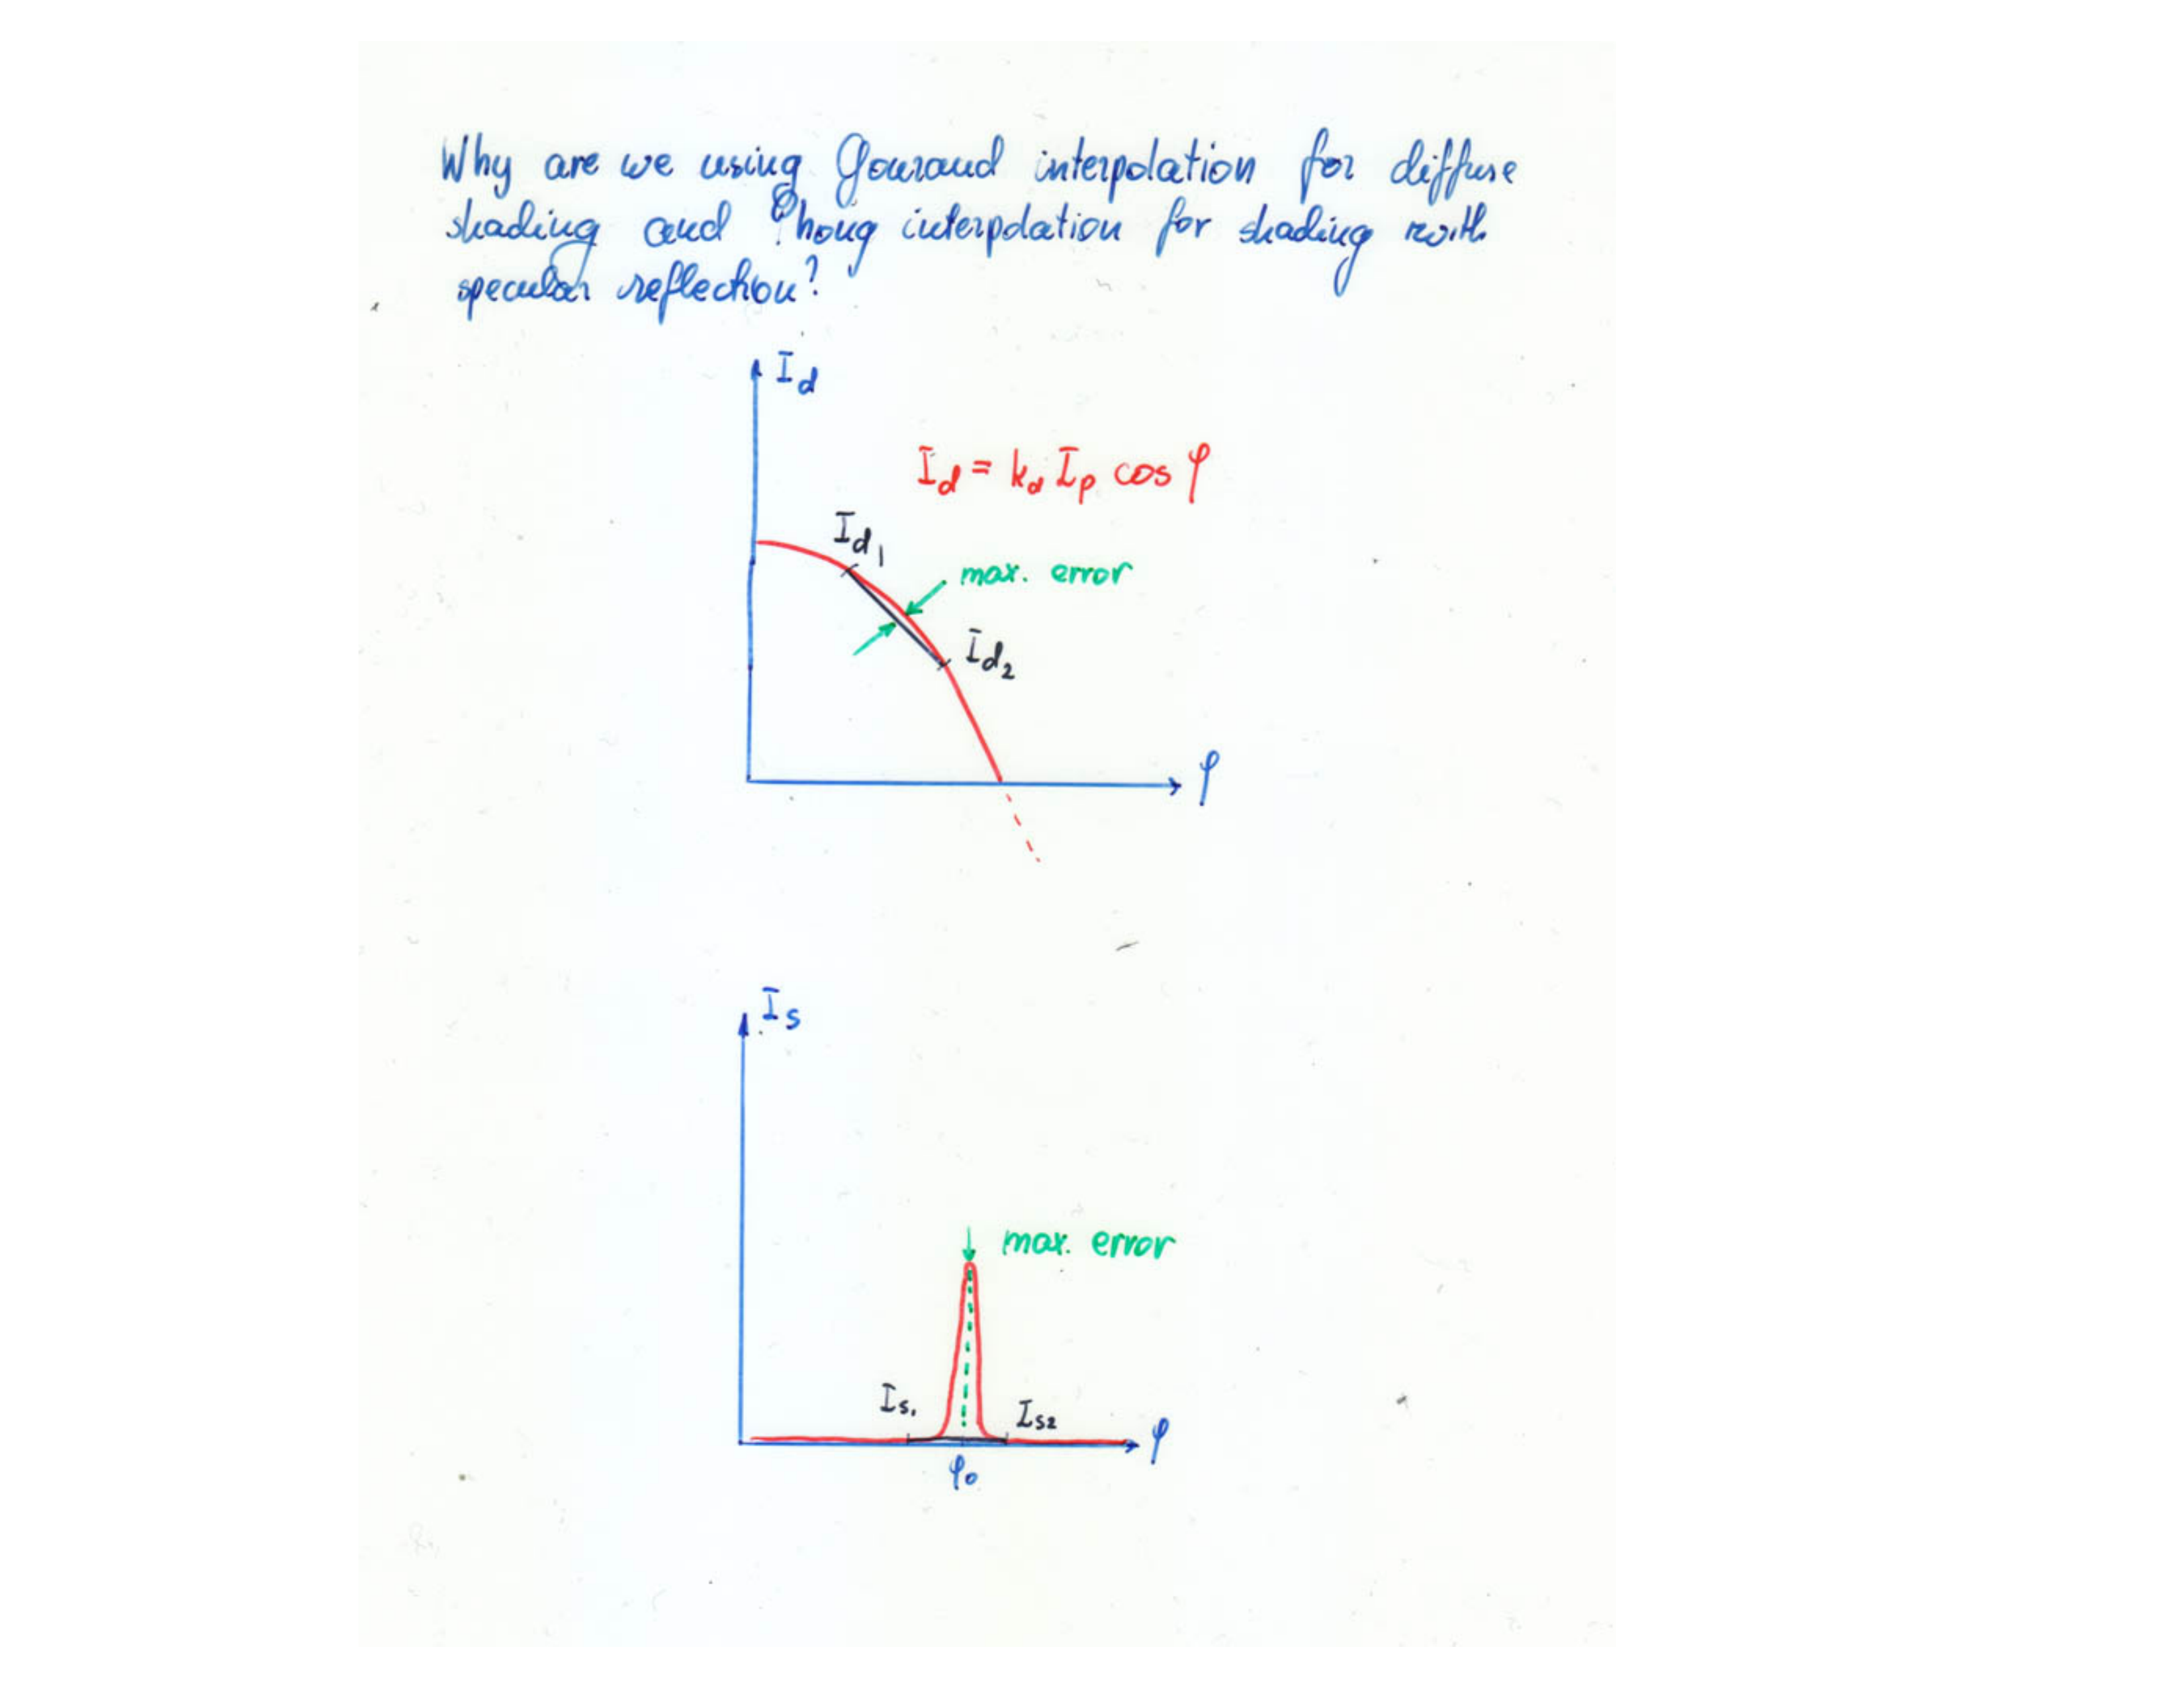 Why are we using Gouraud interpolation for diffuse
shading and Phong interpolation for shading with
specular reflection?
I_d
I_d = k_d I_p cos φ
I_d1
max. error
I_d2
φ
I_s
max. error
I_s1
I_s2
φ
φ_0